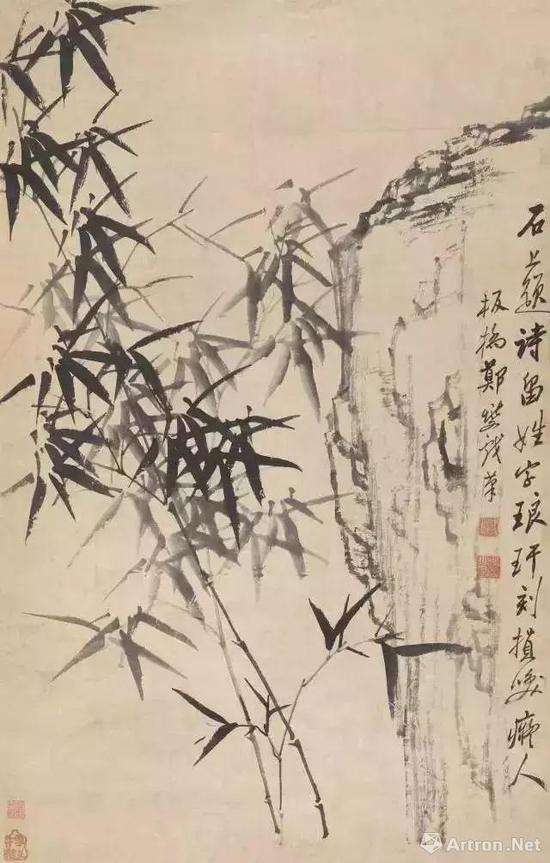 石上題詩留姓字琅玕刻損咲癡人
板橋鄭燮戲筆
Artron.Net